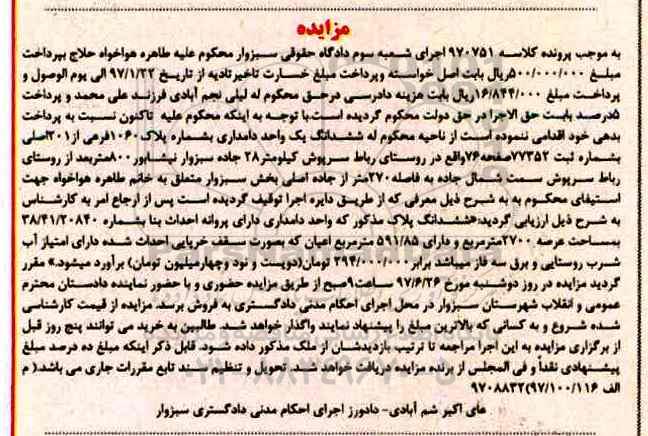 مزایده
به موجب پرونده کلاسه ۹۷۰۷۵۱ اجرای شعبه سوم دادگاه حقوقی سبزوار محکوم علیه طاهره هواخواه حلاج بپرداخت
مبلغ ۵۰۰/۰۰۰/۰۰۰ریال بابت اصل خواسته وپرداخت مبلغ خسارت تاخیرتادیه از تاریخ ۹۷/۱/۲۲ الی یوم الوصول و
پرداخت مبلغ ۱۶/۸۴۴/۰۰۰ریال بابت هزینه دادرسی درحق محکوم له لیلی نجم آبادی فرزند علی محمد و پرداخت
۵درصد بابت حق الاجرا در حق دولت محکوم گردیده است.با توجه به اینکه محکوم علیه تاکنون نسبت به پرداخت
بدهی خود اقدامی ننموده است از ناحیه محکوم له ششدانگ یک واحد دامداری بشماره پلاک۱۰۶۰فرعی از۲۰۱اصلی
بشماره ثبت ۷۷۳۵۲صفحه۷۶واقع در روستای رباط سرپوش کیلومتر۲۸ جاده سبزوار نیشابور۸۰۰متربعد از روستای
رباط سرپوش سمت شمال جاده به فاصله۲۷۰متر از جاده اصلی بخش سبزوار متعلق به خانم طاهره هواخواه جهت
استیفای محکوم به به شرح ذیل معرفی که از طریق دایره اجرا توقیف گردیده است پس از ارجاع امر به کارشناس
به شرح ذیل ارزیابی گردید:«ششدانگ پلاک مذکور که واحد دامداری دارای پروانه احداث بنا بشماره ۳۸/۴۱/۲۰۸۴۰
بمساحت عرصه ۲۷۰۰مترمربع و دارای ۵۹۱/۸۵ مترمربع اعیان که بصورت سقف خرپایی احداث شده دارای امتیاز آب
شرب روستایی و برق سه فاز میباشد برابر۲۹۴/۰۰۰/۰۰۰ تومان(دویست و نود وچهارمیلیون تومان) برآورد میشود.» مقرر
گردید مزایده در روز دوشنبه مورخ ۹۷/۶/۲۶ ساعت۹صبح از طریق مزایده حضوری و با حضور نماینده دادستان محترم
عمومی و انقلاب شهرستان سبزوار در محل اجرای احکام مدنی دادگستری به فروش برسد. مزایده از قیمت کارشناسی
شده شروع و به کسانی که بالاترین مبلغ را پیشنهاد نمایند واگذار خواهد شد. طالبین به خرید می توانند پنج روز قبل
از برگزاری مزایده به این اجرا مراجعه تا ترتیب بازدیدشان از ملک مذکور داده شود. قابل ذکر اینکه مبلغ ده درصد مبلغ
پیشنهادی نقداً و فی المجلس از برنده مزایده دریافت خواهد شد. تحویل و تنظیم سند تابع مقررات جاری می باشد.( م
الف ۹۷/۱۰۰/۱۱۶)۹۷۰۸۸۳۲
علی اکبر شم آبادی- دادورز اجرای احکام مدنی دادگستری سبزوار